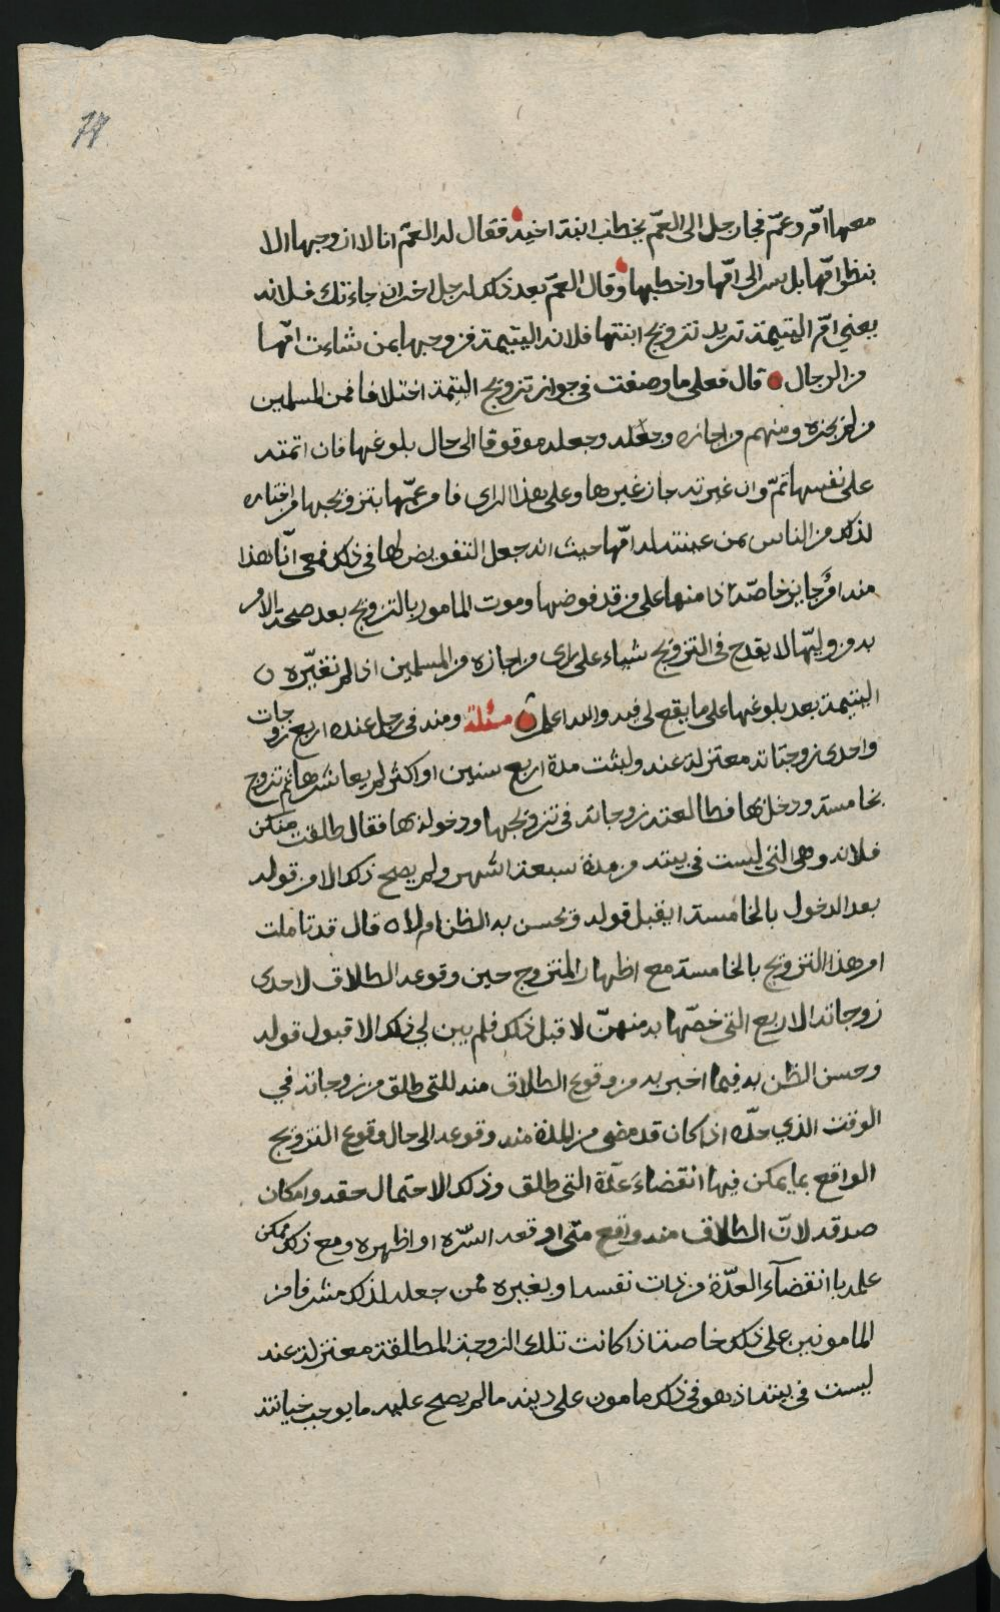 77
معها امّ وعمّ فجا رجل الى العمّ يخطب ابنة اخيه فقال له العمّ انا لا ازوجها الا
بنظر امّها بل سر الى امّها واخطبها وقال العمّ بعد ذلك لرجل اخر ان جاءتك فلانه
يعني امّ اليتيمة تريد تزويج ابنتها فلانه اليتيمة فزوجها بمن شاءت امّها
من الرجال قال فعلى ما وصفت في جواز تزويج اليتيمة اختلافا فمن المسلمين
من لم يجزه ومنهم من اجازه وجعله وجعله موقوفا الى حال بلوغها فان اتمته
على نفسها تمّ وان غيرته جاز غيرها وعلى هذا الراى فامر عمّها بتزويجها من اختاره
لذلك من الناس من عينته له امّها حيث انه جعل التفويض لها في ذلك فمعى انّ هذا
منه امر جايز خاصّة اذا منها على من قد فوضها وموت المامور بالتزويج بعد صحة الامر
به من وليّها لا يقدح في التزويج شياء على راى من اجازه من المسلمين اذا لم تغيّره
اليتيمة بعد بلوغها على ما يقع لى فيه والله اعلم مسئلة ومنه في رجل عنده اربع زوجات
واحدى زوجاته معتزلة عنه ولبثت مدة اربع سنين او اكثر لم يعاشرها ثم تزوج
بخامسة ودخل بها فطالعته زوجاته في تزويجها ودخوله بها فقال طلقت منكن
فلانه وهى التى ليست في بيته من مدة سبعة اشهر ولم يصح ذلك الا من قوله
بعد الدخول بالخامسة ايقبل قوله ويحسن به الظن ام لا قال قد تاملت
امر هذا التزويج بالخامسة مع اظهار المتزوج حين وقوعه الطلاق لاحدى
زوجاته الاربع التى خصّها به منهنّ لا قبل ذلك فلم يبن لي ذلك الا قبول قوله
وحسن الظن به فيما اخبر به من وقوع الطلاق منه للتى طلق من زوجاته في
الوقت الذي حدّه اذا كان قد مضى من المدة منه وقوعه الى حال وقوع التزويج
الواقع بما يمكن فيها انقضاء عدّة التى طلق وذلك لاحتمال حقه وامكان
صدقه لانّ الطلاق منه واقع متى اوقعه اسرّه او اظهره ومع ذلك ممكن
علمه بانقضآء العدّة من ذات نفسه او بغيره ممن جعله لذلك مشرفا من
المامونين على ذلك خاصة اذا كانت تلك الزوجة المطلقة معتزلة عنه
ليست في بيته اذ هو في ذلك مامون على دينه ما لم يصح عليه ما يوجب خيانته